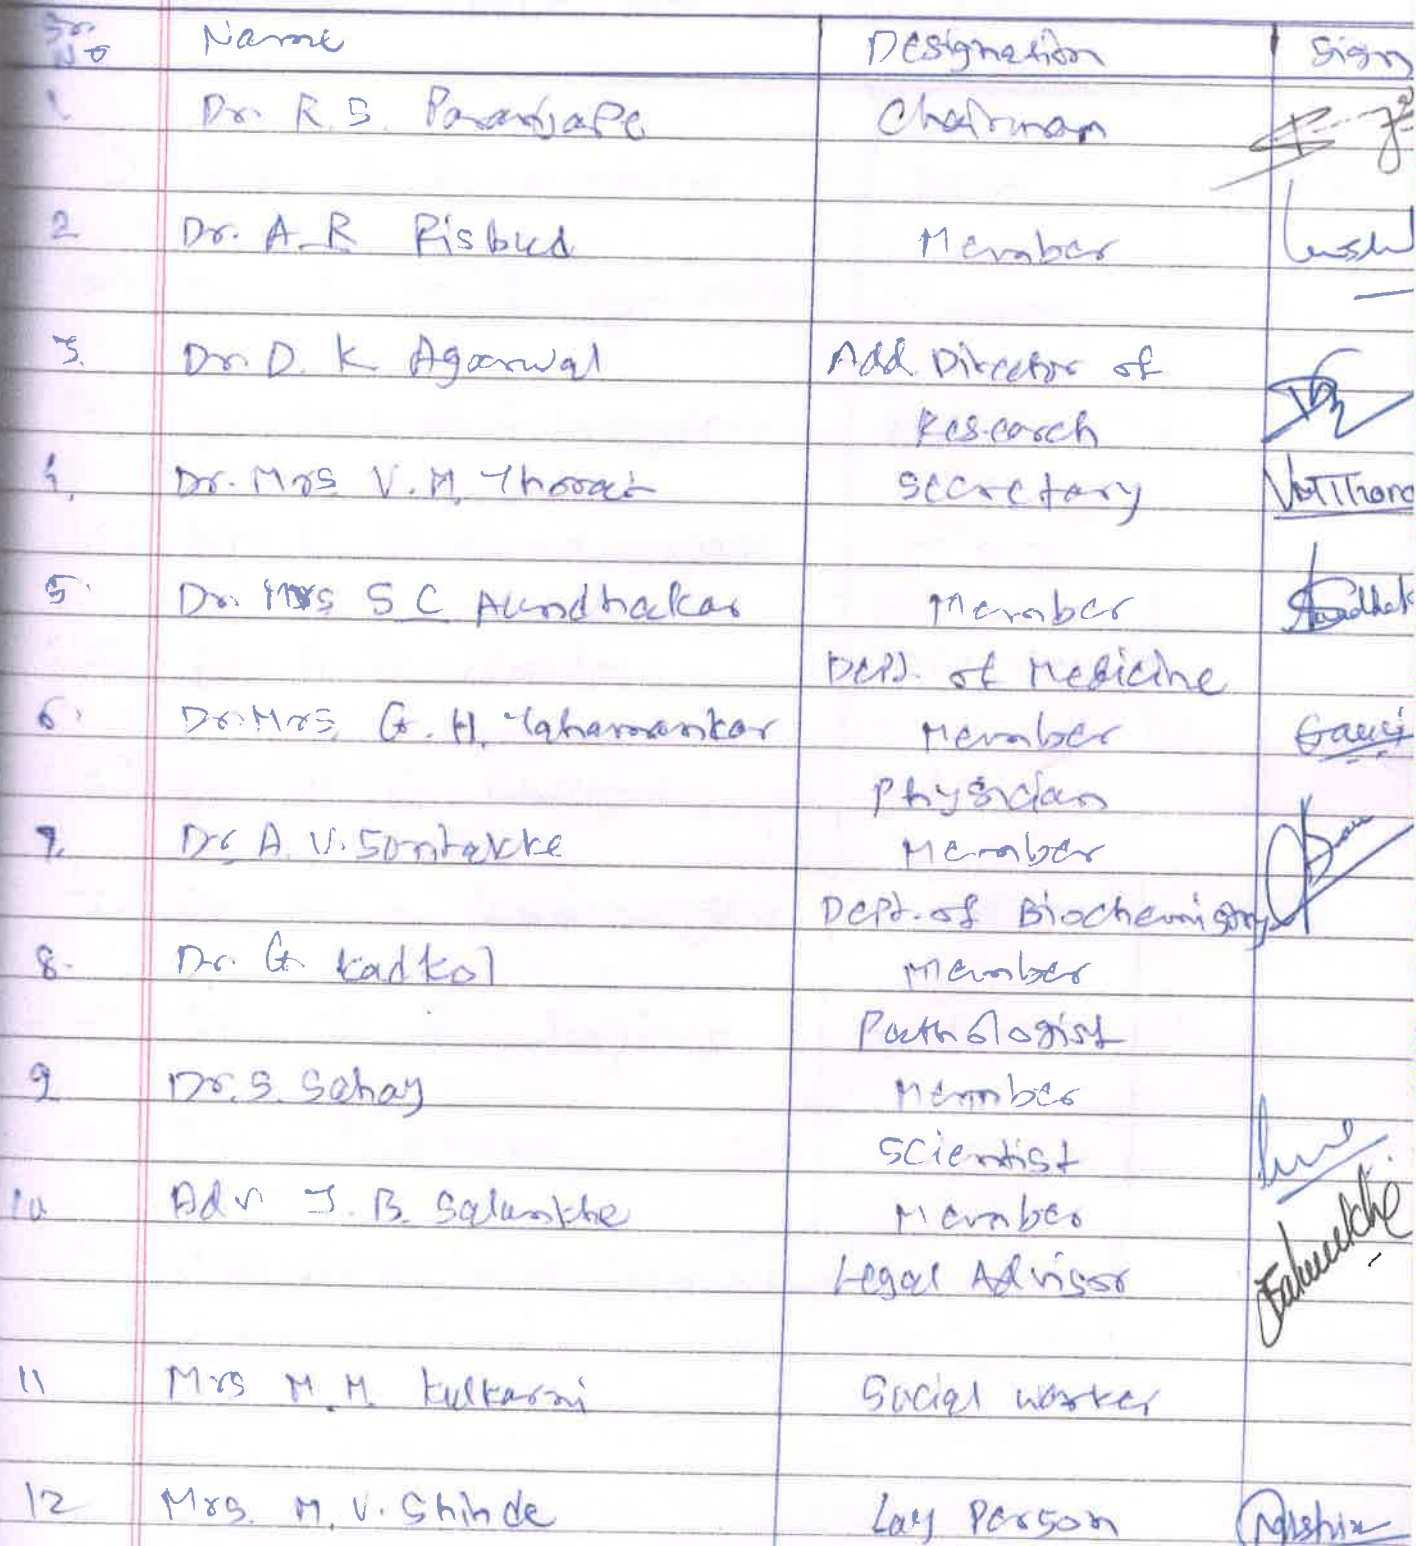 Sr. No Name Designation Sign
1 Dr. R. S. Paranjape Chairman
2 Dr. A. R Risbud Member
3. Dr. D. K Agarwal Add Director of
Research
4. Dr. Mrs V. M. Thorat Secretary
5. Dr. Mrs S C Aundhakar Member
Dept. of Medicine
6. Dr. Mrs. G. H. Member
Physician
7. Dr A. V. Sontakke Member
Dept. of Biochemistry
8. Dr. G Kadkol Member
Pathologist
9 Dr. S. Sahay Member
Scientist
10 Adv J. B. Salunkhe Member
Legal Advisor
11 Mrs M. M. Kulkarni Social worker
12 Mrs. M. V. Shinde Lay Person